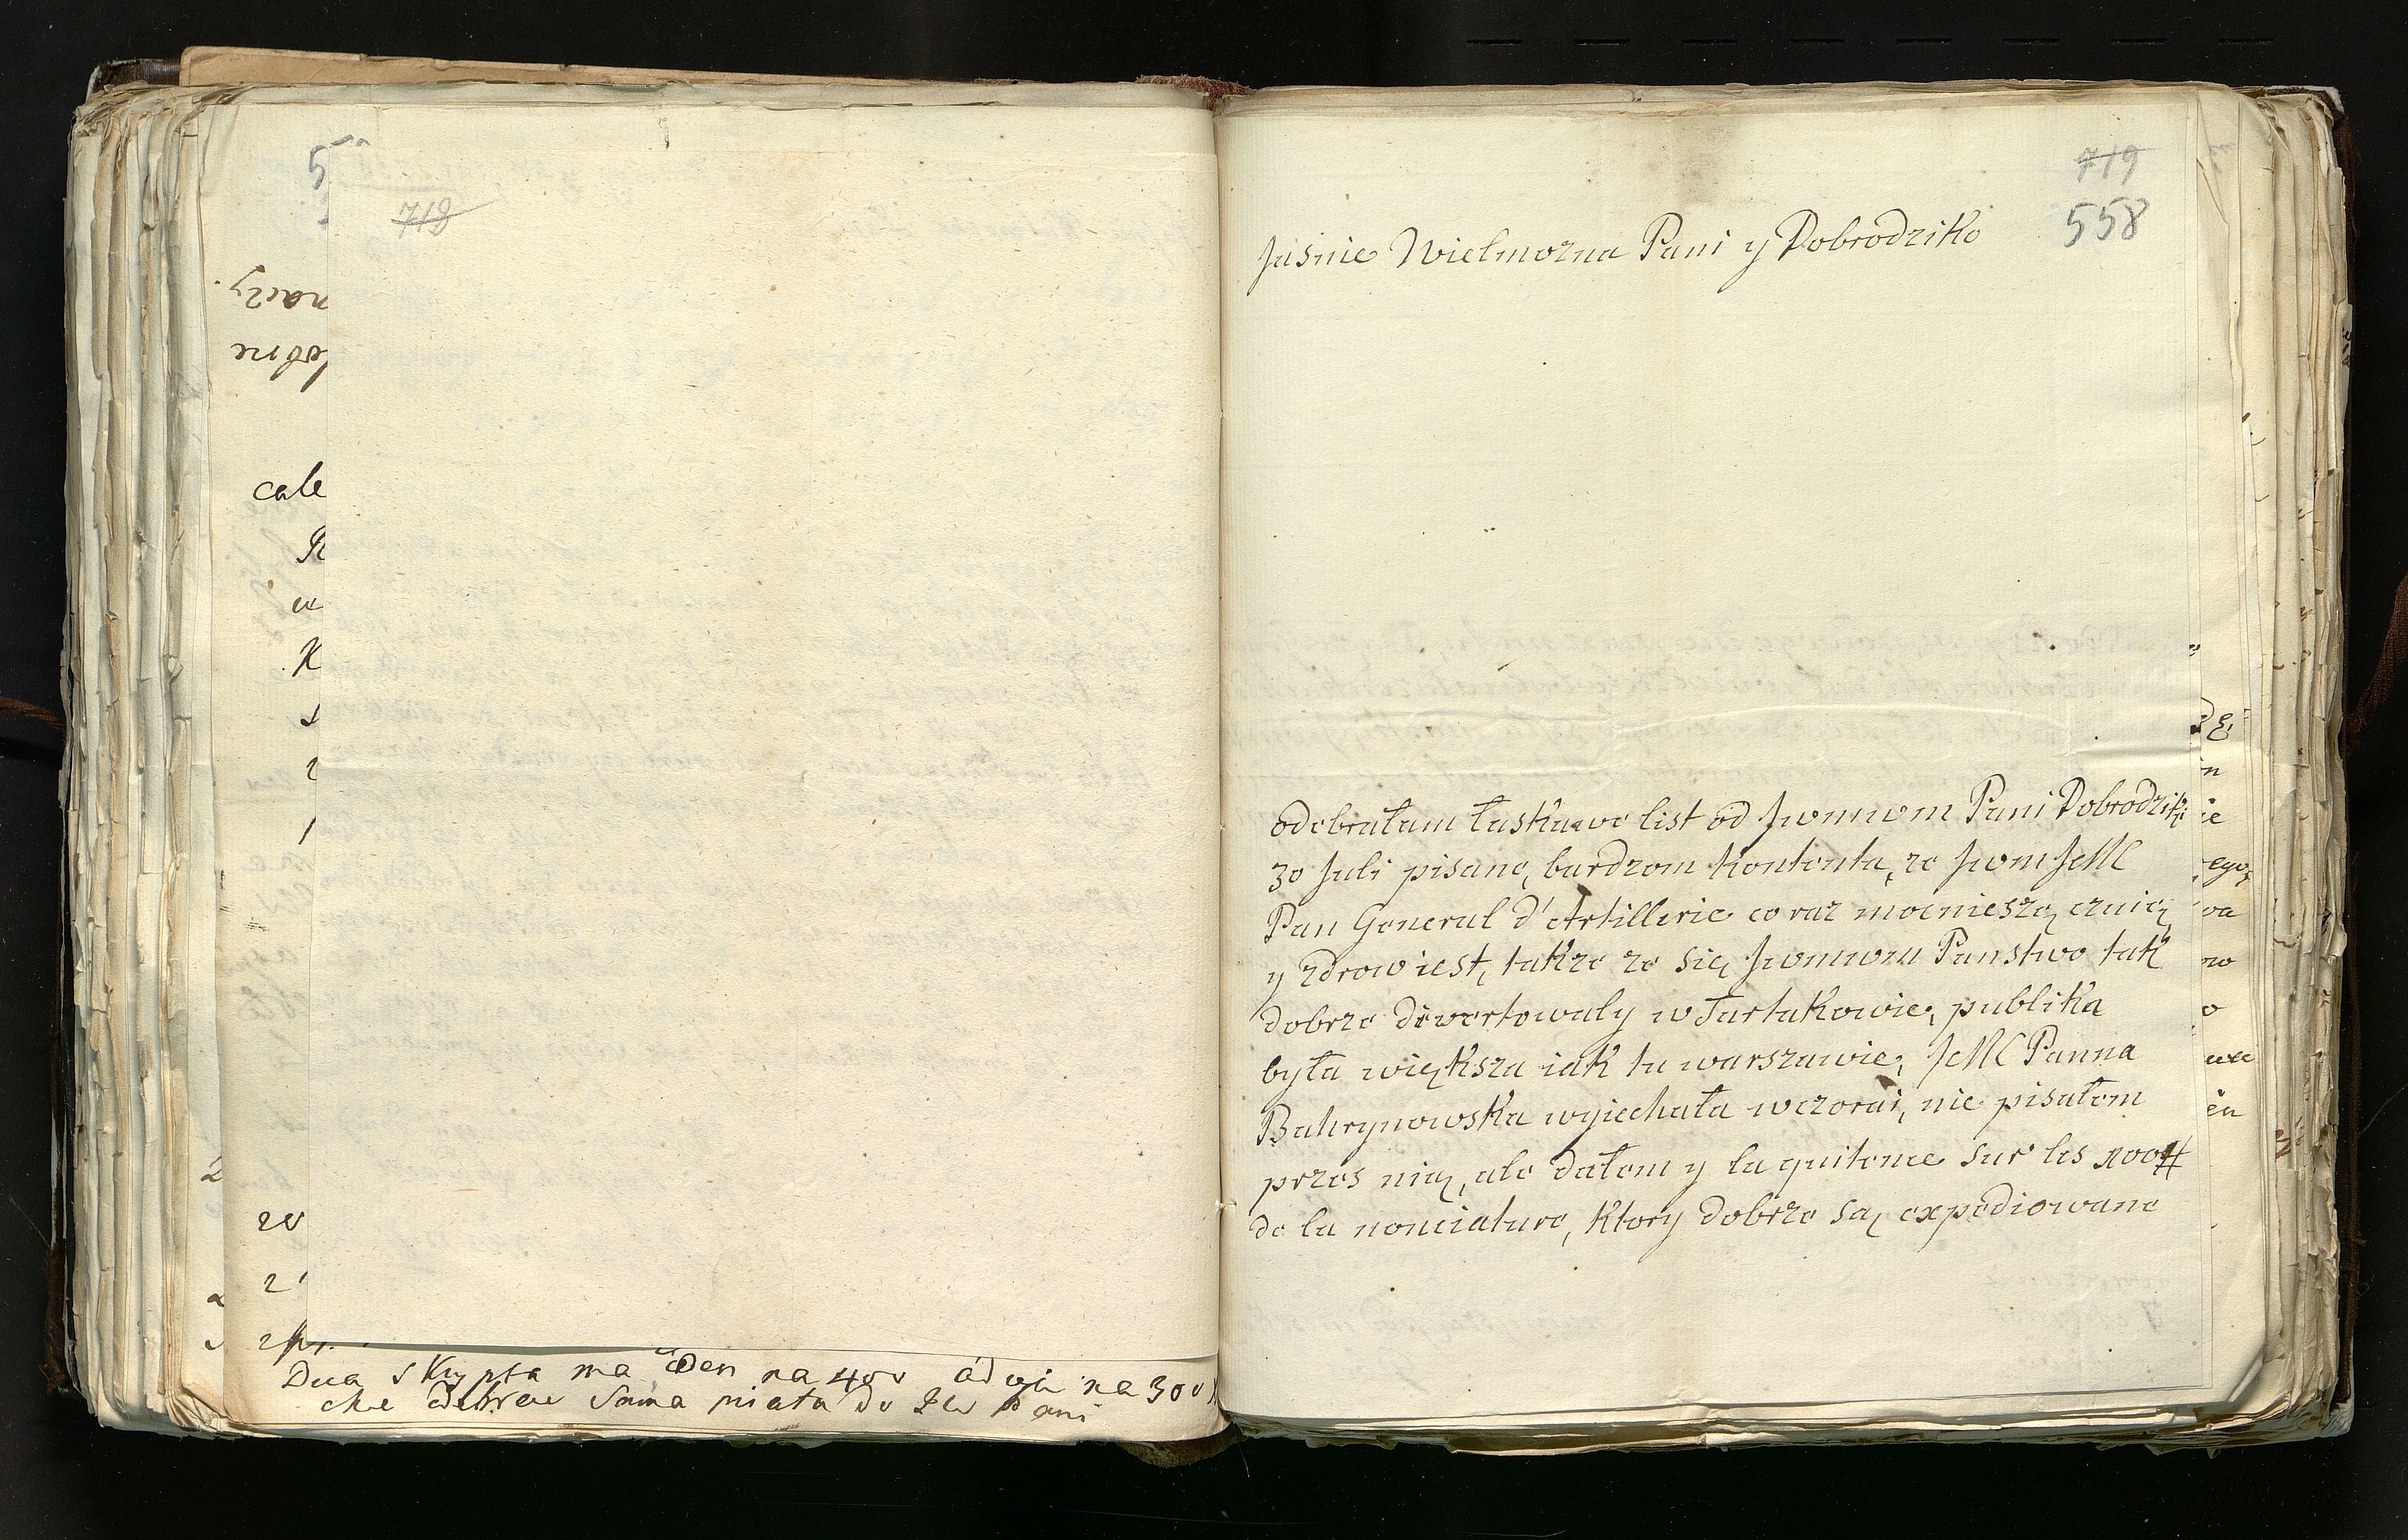 5
718
naczy.
dobrze
cale
R
K
20
2
Dwa skrypta ma ieden na 400 a drugi na 300
sama miała do Pani
719
558
Jasnie Wielmozna Pani y Dobrodziko
odebrałam łaskawe list od Jwmwm Pani Dobrodziki
30 Juli pisane, bardzom kontenta, ze Jwm JeMC
Pan General d'Artillerie co raz mocnieszą czuię
y zdrow iest, takze ze się Jwmwm Panstwo tak
dobrze diwertowaly w Tartakowie, publika
była większa iak tu warszawie, JeMC Panna
Bahrynowska wyiechała wczorai, nie pisałem
przes nią, ale dałem y la quitence sur les 1000#
de la nonciature, ktory dobrze są expediowane